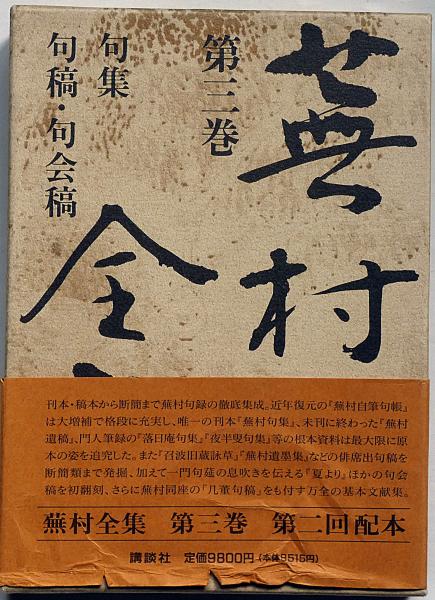 蕪村
全
第三巻
句集
句稿・句会稿
刊本・稿本から断簡まで蕪村句録の徹底集成。近年復元の『蕪村自筆句帳』
は大増補で格段に充実し、唯一の刊本『蕪村句集』、未刊に終わった『蕪村
遺稿』、門人筆録の『落日庵句集』『夜半叟句集』等の根本資料は最大限に原
本の姿を追究した。また『召波旧蔵詠草』『蕪村遺墨集』などの俳席出句稿を
断簡類まで発掘、加えて一門句莚の息吹きを伝える『夏より』ほかの句会
稿を初翻刻、さらに蕪村同座の「几董句稿」をも付す万全の基本文献集。
蕪村全集 第三巻 第二回配本
講談社 定価9800円(本体9515円)